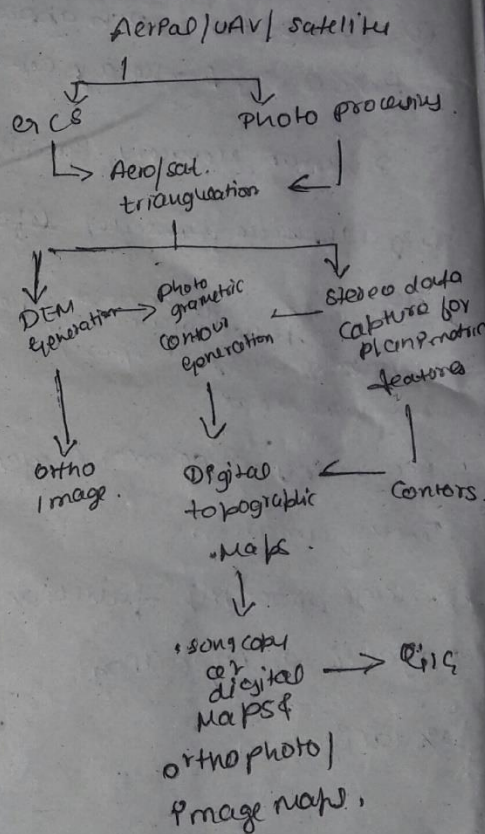 Aerial/UAV/ satelite
GCS
Photo processing.
Aero/sat.
triangulation
DEM
Generation
photo
grametric
contour
generation
stereo data
capture for
planimetric
features
ortho
image.
Digital
topographic
Maps.
Contors.
copy
or
digital
Maps &
orthophoto/
image maps.